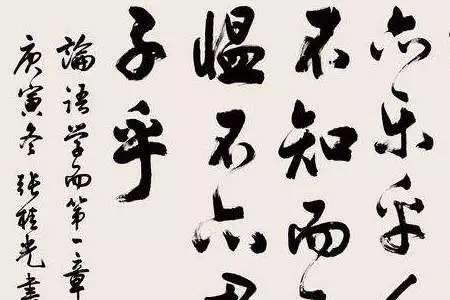 亦乐乎人
不知而不
愠不亦君
子乎
論語学而第一章
庚寅冬张桂光書